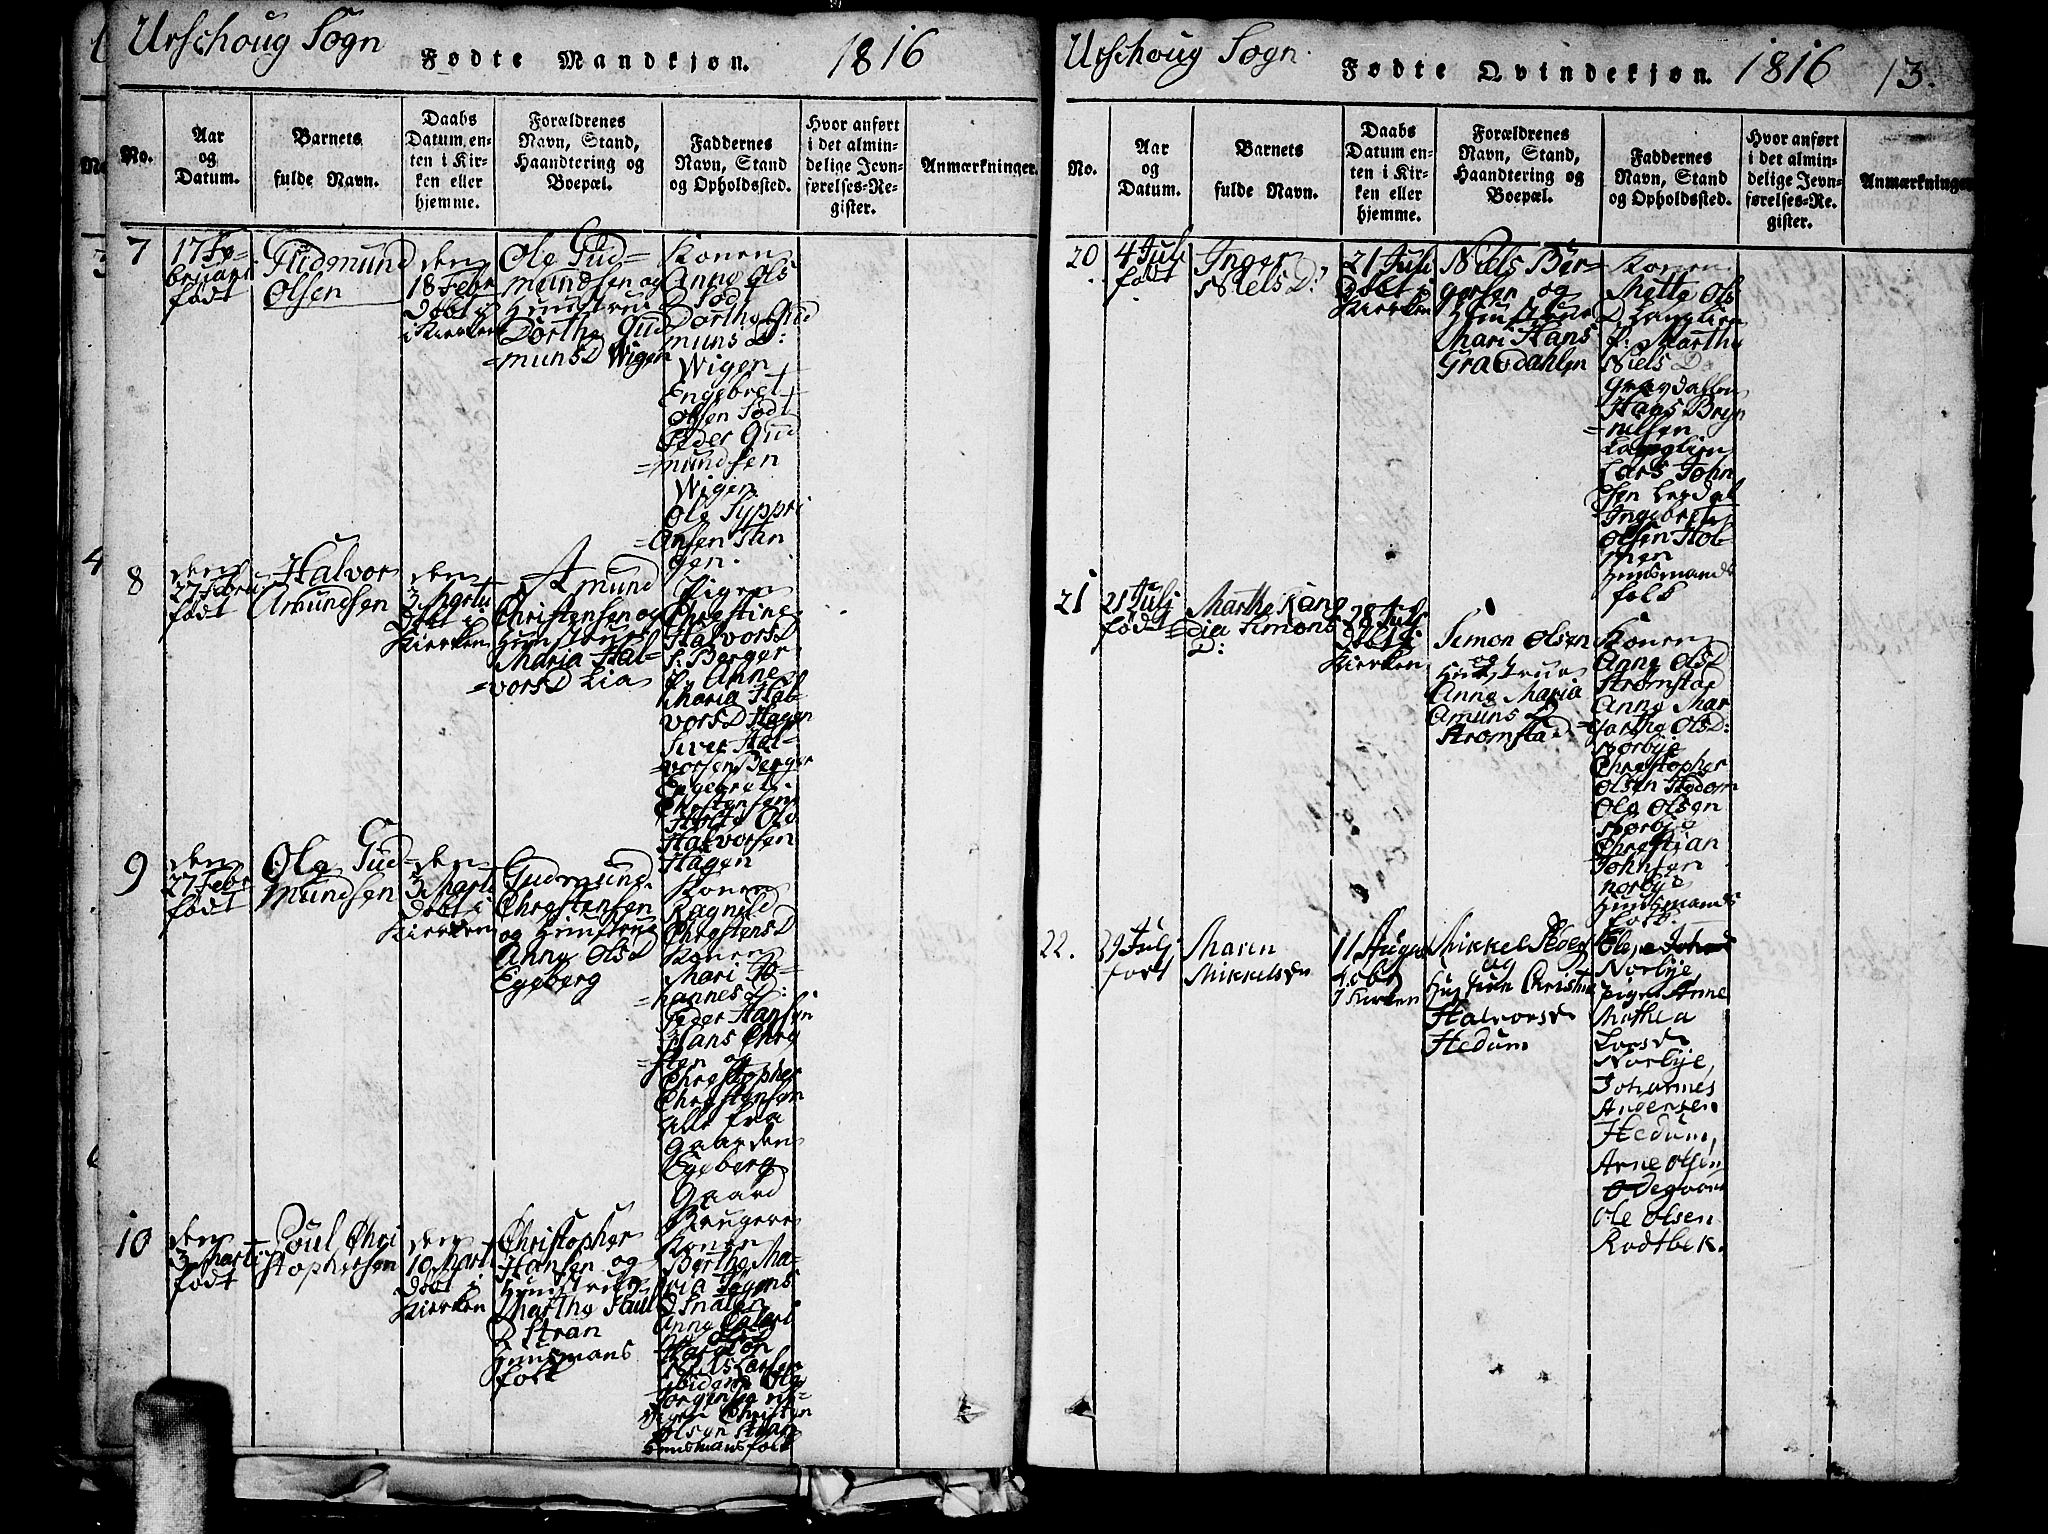 Urschoug Sogn
Fødte Mandkjøn.
1816
No.
Aar
og
Datum.
Barnets
fulde Navn.
Daabs
Datum en-
ten i Kir-
ken eller
hjemme.
Forældrenes
Navn, Stand,
Haandtering og
Boepæl.
Faddernes
Navn, Stand
og Opholdssted.
Hvor anført
i det almin-
delige Jevn-
førelses-Re-
gister.
Anmærkninger.
7
17 Fe-
bruari
født
Gudmund
Olsen
den
18 Febr
Døbt i
Kierken
Ole Gud=
mundsen og
Hunstrue
Dorthe Gud
=munsD Wigen
Konen
Anne Ols
D Todt
Dorthe Gud
muns D:
Wigen
Engebret
Olsen Todt
Peder Gud
=mundsen
Wigen
Ole Syppri
=ansen Stan
gen.
8
den
27 Febru
født
Halvor
Amundsen
den
3 Marti
Døbt i
Kierken
Amund
Christensen og
Hunstrue
Maria Hal=
=vorsD Lia
Pigen
Christine
HalvorsD
S: Berger
P: Anne
Maria Hal=
vorsD Hagen
Siver Hal=
=vorsen Berger
Engebret
Christensen
Holte Ole
Halvorsen
Hagen
9
den
27 Febr
født
Ole Gud=
mundsen
den
3 Marti
Døbt i
Kierken
Gudmund
Christensen
og Hunstrue
Anne OlsD
Egeberg
Konen
Ragnild
ChrestensD
Konen
Mari Jo=
=hannes D:
Peder Hansen
Hans Chre
=sten og
Chrestopher
Chrestensen
alle fra
Gaarden
Egeberg
Gaard
Brugere
10
den
3 Marti
født
Poul Chri
stophersen
den
10 Marti
Døbt i
Kierken
Christopher
Hansen og
Hunstrue
Marthe Poul
D Stran
Hunsmans
folk
Konen
Berthe Ma=
ria Jegens
D Snalen
Anne Catari
na OlsD
Niels Larsen
Christen
Olsen Stran
Hunsmansfolk
Urschoug Sogn.
Fødte Qvindekjøn.
1816
13.
No.
Aar
og
Datum.
Barnets
fulde Navn.
Daabs
Datum en-
ten i Kir-
ken eller
hjemme.
Forældrenes
Navn, Stand,
Haandtering og
Boepæl.
Faddernes
Navn, Stand
og Opholdssted.
Hvor anført
i det almin-
delige Jevn-
førelses-Re-
gister.
Anmærkninger
20
4 Juli
født
Inger
Niels D:
21 Juli
Døbt i
Kierken
Niels Ber=
gersen og
Hunstrue
Mari Hans
Gravdahlen
Konen
Mette Ols
D Langlien
P: Marthe
Niels D
Gravdallen
Hans Bryn
=nelsen
Langlien
Lars John
sen Lerdal
Ingebret
Olsen Hol=
men
Hunsmands
folk
21
21 Juli
født
Marthe Kang
=edia Simons
D:
28 Juli
Døbt i
Kierken
Simon Olsen
og
Hunstrue
Anne Maria
Amuns D
Strømstad
Konen
Anne OlsD
Strømstad
Anne Mar
=garthe OlsD:
Norbye
Christopher
Olsen
Ole Olsen
Norbye
Christian
Johnsen
Norbye
Hunsmands
folk.
22.
29 Juli
født
Maren
Mikkelsdr
11 August
døbt
i Kirken
Mikkel Peders
og
Hustrue Christine
Halvorsdr
Hedum
Norbye,
pigen Anne
Mathea
Larsdr
Norbye,
Johannes
Andersen
Hedum,
Arne Olsen
Ødegaard
Ole Olsen
Rødtbek.